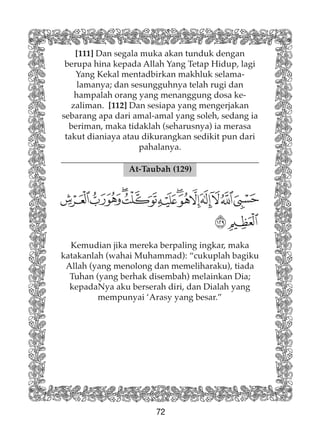 [111] Dan segala muka akan tunduk dengan
berupa hina kepada Allah Yang Tetap Hidup, lagi
Yang Kekal mentadbirkan makhluk selama-
lamanya; dan sesungguhnya telah rugi dan
hampalah orang yang menanggung dosa ke-
zaliman.  [112] Dan sesiapa yang mengerjakan
sebarang apa dari amal-amal yang soleh, sedang ia
beriman, maka tidaklah (seharusnya) ia merasa
takut dianiaya atau dikurangkan sedikit pun dari
pahalanya.
At-Taubah (129)
حَسْبِىَ ٱللَّهُ لَآ إِلَٰهَ إِلَّا هُوَ ۖ عَلَيْهِ تَوَكَّلْتُ ۖ وَهُوَ رَبُّ ٱلْعَرْشِ
ٱلْعَظِيمِ ١٢٩
Kemudian jika mereka berpaling ingkar, maka
katakanlah (wahai Muhammad): “cukuplah bagiku
Allah (yang menolong dan memeliharaku), tiada
Tuhan (yang berhak disembah) melainkan Dia;
kepadaNya aku berserah diri, dan Dialah yang
mempunyai ‘Arasy yang besar.”
72